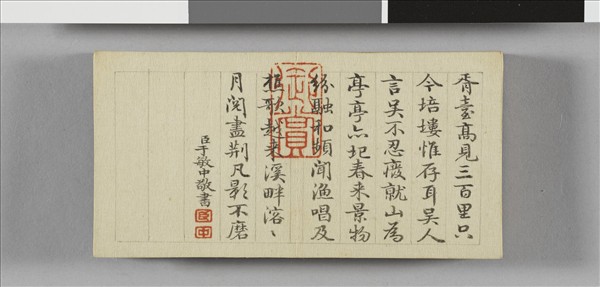 胥臺高見三百里只
今培塿惟存耳吳人
言吳不忍廢就山為
亭亭亦圯春來景物
紛融和頻聞漁唱及
樵歌越來溪畔溶〻
月閱盡荆凡影不磨
臣于敏中敬書
臣
中
御賞